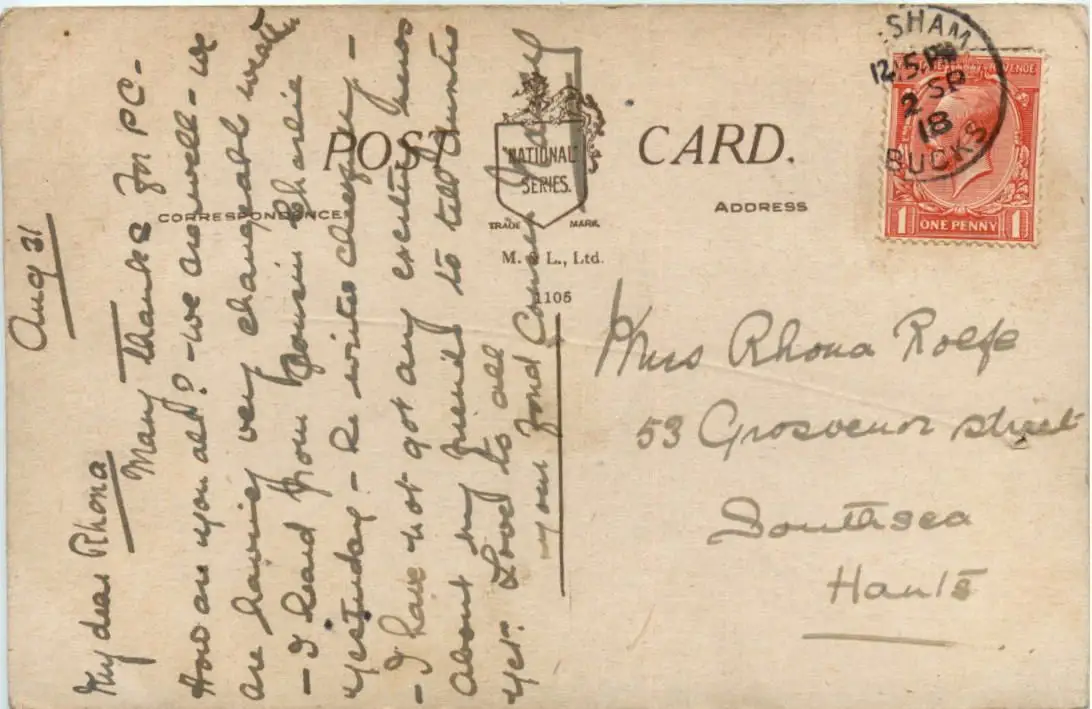 POST CARD.
"NATIONAL"
SERIES.
TRADE MARK.
M. & L., Ltd.
1105
CORRESPONDENCE
ADDRESS
SHAM
12.15 PM
2 SP
18
BUCKS
REVENUE
1 ONE PENNY 1
Aug 31
My dear Rhona
Many thanks for PC -
How are you all? - we are well - we
are having very changeable weath
- I heard from Cousin Charlie
yesterday - he writes cheerfully -
- I have not got any exciting news
about my friend to tell Auntie
yet. Love to all
your fond Cousin
Miss Rhona Rolfe
53 Grosvenor street
Southsea
Hants